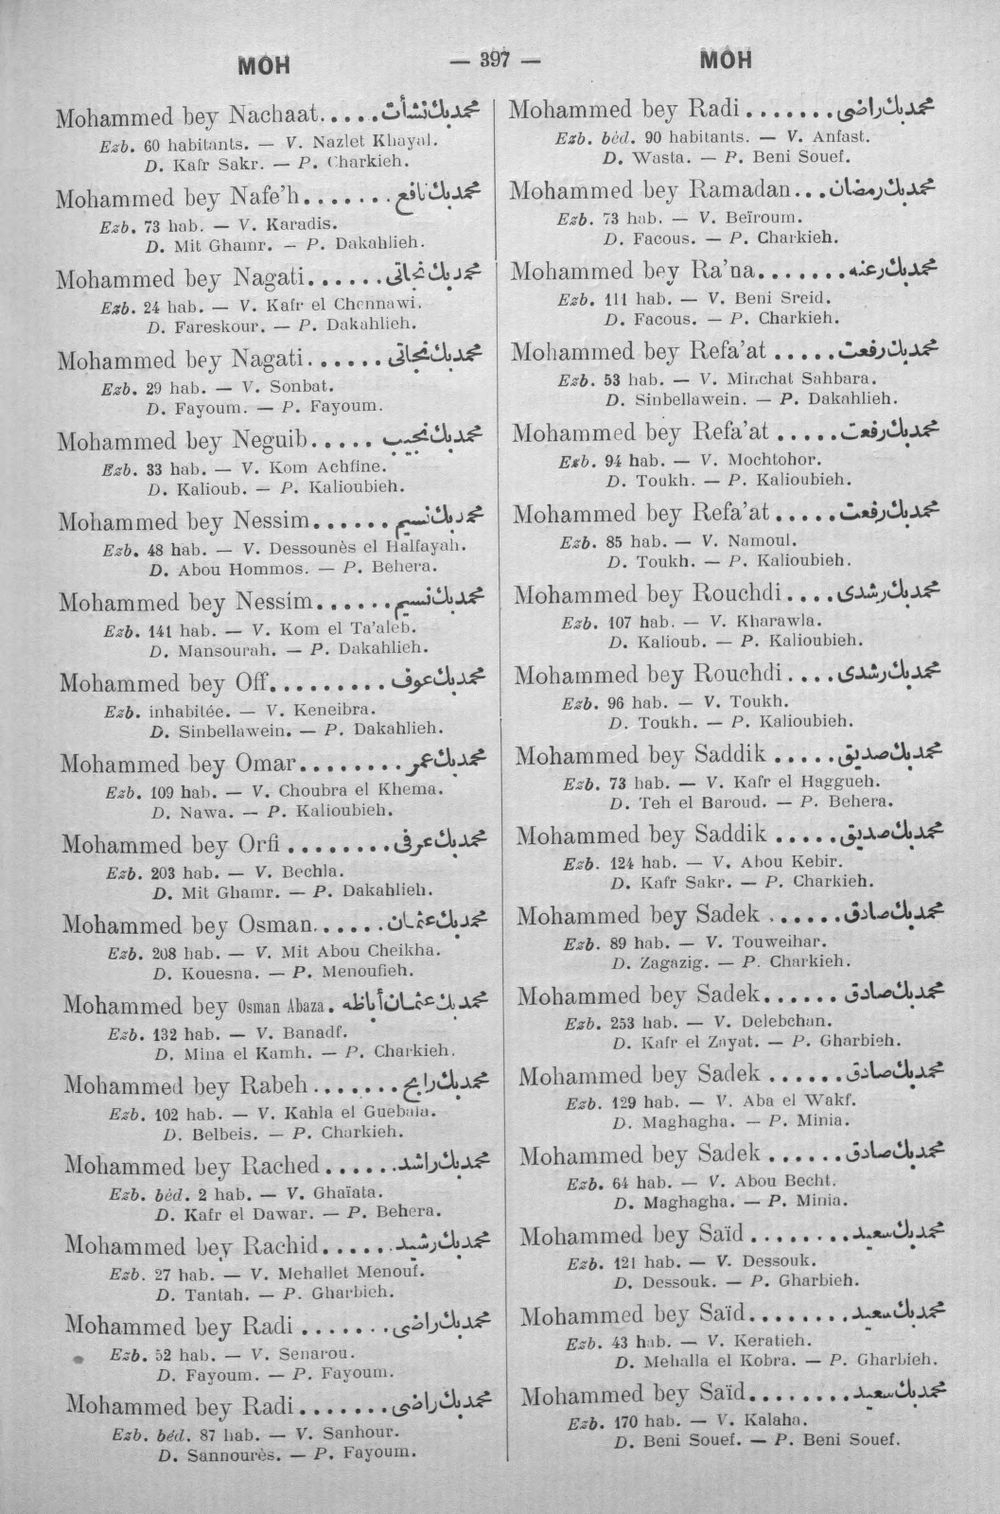 MOH
— 397 —
MOH
Mohammed bey Nachaat.....محمد بك نشأت
Ezb. 60 habitants. — V. Nazlet Khayal.
D. Kafr Sakr. — P. Charkieh.
Mohammed bey Nafe'h.......محمد بك نافع
Ezb. 73 hab. — V. Karadis.
D. Mit Ghamr. — P. Dakahlieh.
Mohammed bey Nagati......محمد بك نجاتى
Ezb. 24 hab. — V. Kafr el Chennawi.
D. Fareskour. — P. Dakahlieh.
Mohammed bey Nagati......محمد بك نجاتى
Ezb. 29 hab. — V. Sonbat.
D. Fayoum. — P. Fayoum.
Mohammed bey Neguib.....محمد بك نجيب
Ezb. 33 hab. — V. Kom Achfine.
D. Kalioub. — P. Kalioubieh.
Mohammed bey Nessim......محمد بك نسيم
Ezb. 48 hab. — V. Dessounès el Halfayah.
D. Abou Hommos. — P. Behera.
Mohammed bey Nessim......محمد بك نسيم
Ezb. 141 hab. — V. Kom el Ta'aleb.
D. Mansourah. — P. Dakahlieh.
Mohammed bey Off.........محمد بك عوف
Ezb. inhabitée. — V. Keneibra.
D. Sinbellawein. — P. Dakahlieh.
Mohammed bey Omar........محمد بك عمر
Ezb. 109 hab. — V. Choubra el Khema.
D. Nawa. — P. Kalioubieh.
Mohammed bey Orfi ........محمد بك عرفى
Ezb. 203 hab. — V. Bechla.
D. Mit Ghamr. — P. Dakahlieh.
Mohammed bey Osman......محمد بك عثمان
Ezb. 208 hab. — V. Mit Abou Cheikha.
D. Kouesna. — P. Menoufieh.
Mohammed bey Osman Abaza. محمد بك عثمان أباظه
Ezb. 132 hab. — V. Banadf.
D. Mina el Kamh. — P. Charkieh.
Mohammed bey Rabeh.......محمد بك رابح
Ezb. 102 hab. — V. Kahla el Guebala.
D. Belbeis. — P. Charkieh.
Mohammed bey Rached......محمد بك راشد
Ezb. béd. 2 hab. — V. Ghaïata.
D. Kafr el Dawar. — P. Behera.
Mohammed bey Rachid......محمد بك رشيد
Ezb. 27 hab. — V. Mehallet Menouf.
D. Tantah. — P. Gharbieh.
Mohammed bey Radi .......محمد بك راضى
Ezb. 52 hab. — V. Senarou.
D. Fayoum. — P. Fayoum.
Mohammed bey Radi.......محمد بك راضى
Ezb. béd. 87 hab. — V. Sanhour.
D. Sannourès. — P. Fayoum.
Mohammed bey Radi .......محمد بك راضى
Ezb. béd. 90 habitants. — V. Anfast.
D. Wasta. — P. Beni Souef.
Mohammed bey Ramadan...محمد بك رمضان
Ezb. 73 hab. — V. Beïroum.
D. Facous. — P. Charkieh.
Mohammed bey Ra'na.......محمد بك رعنه
Ezb. 111 hab. — V. Beni Sreid.
D. Facous. — P. Charkieh.
Mohammed bey Refa'at .....محمد بك رفعت
Ezb. 53 hab. — V. Minchat Sahbara.
D. Sinbellawein. — P. Dakahlieh.
Mohammed bey Refa'at .....محمد بك رفعت
Ezb. 94 hab. — V. Mochtohor.
D. Toukh. — P. Kalioubieh.
Mohammed bey Refa'at .....محمد بك رفعت
Ezb. 85 hab. — V. Namoul.
D. Toukh. — P. Kalioubieh.
Mohammed bey Rouchdi ....محمد بك رشدى
Ezb. 107 hab. — V. Kharawla.
D. Kalioub. — P. Kalioubieh.
Mohammed bey Rouchdi ....محمد بك رشدى
Ezb. 96 hab. — V. Toukh.
D. Toukh. — P. Kalioubieh.
Mohammed bey Saddik .....محمد بك صديق
Ezb. 73 hab. — V. Kafr el Haggueh.
D. Teh el Baroud. — P. Behera.
Mohammed bey Saddik .....محمد بك صديق
Ezb. 124 hab. — V. Abou Kebir.
D. Kafr Sakr. — P. Charkieh.
Mohammed bey Sadek ......محمد بك صادق
Ezb. 89 hab. — V. Touweihar.
D. Zagazig. — P. Charkieh.
Mohammed bey Sadek......محمد بك صادق
Ezb. 253 hab. — V. Delebchan.
D. Kafr el Zayat. — P. Gharbieh.
Mohammed bey Sadek ......محمد بك صادق
Ezb. 129 hab. — V. Aba el Wakf.
D. Maghagha. — P. Minia.
Mohammed bey Sadek ......محمد بك صادق
Ezb. 64 hab. — V. Abou Becht.
D. Maghagha. — P. Minia.
Mohammed bey Saïd ........محمد بك سعيد
Ezb. 121 hab. — V. Dessouk.
D. Dessouk. — P. Gharbieh.
Mohammed bey Saïd........محمد بك سعيد
Ezb. 43 hab. — V. Keratieh.
D. Mehalla el Kobra. — P. Gharbieh.
Mohammed bey Saïd........محمد بك سعيد
Ezb. 170 hab. — V. Kalaha.
D. Beni Souef. — P. Beni Souef.